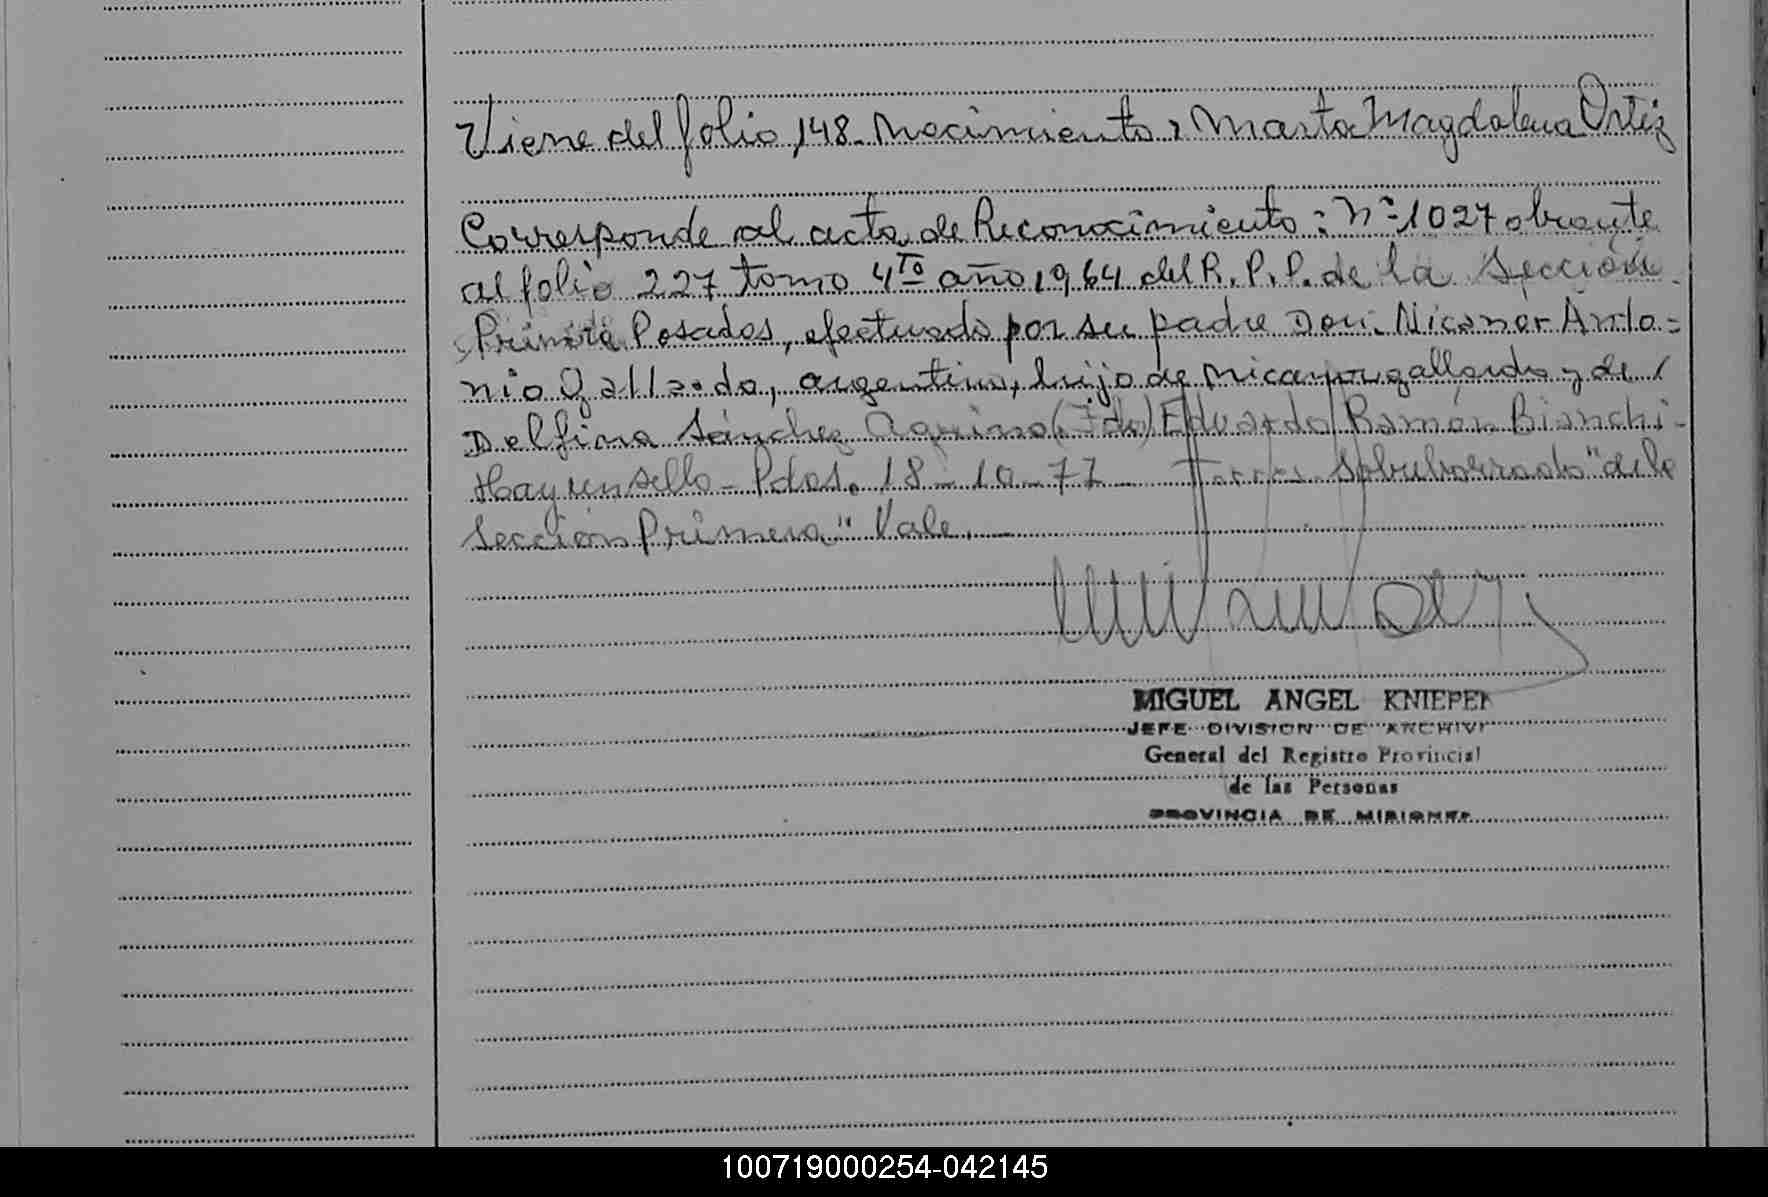 Viene del folio, 148. Nacimiento, Marta Magdalena Ortiz
Corresponde al acta de Reconocimiento: Nº 1027 obrante
al folio 227 tomo 4to año 1964 del R.P.P. de la Sección
Primera Posadas, efectuado por su padre Don. Nicanor Anto=
nio Gallardo, argentino, hijo de Gallardo y de /
Delfina Sánchez Aquino (Fdo) Eduardo Ramón Bianchi-
Hay un sello - Pdas. 18-10-77 Sobreborrado "de la
Sección Primera" Vale.
MIGUEL ANGEL KNIEPER
JEFE DIVISION DE ARCHIVO
General del Registro Provincial
de las Personas
PROVINCIA DE MISIONES
100719000254-042145